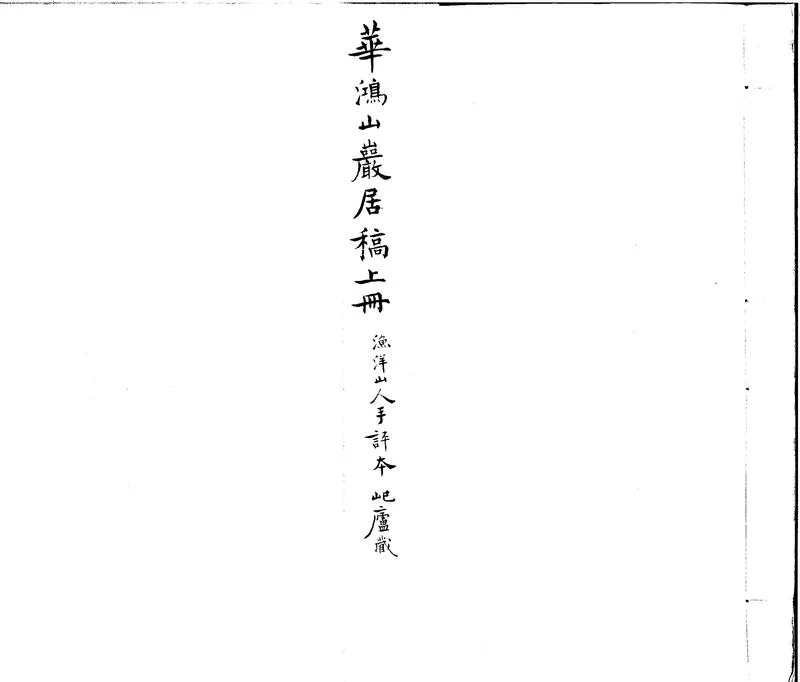 華鴻山巖居稿上冊
漁洋山人手評本 屺廬藏